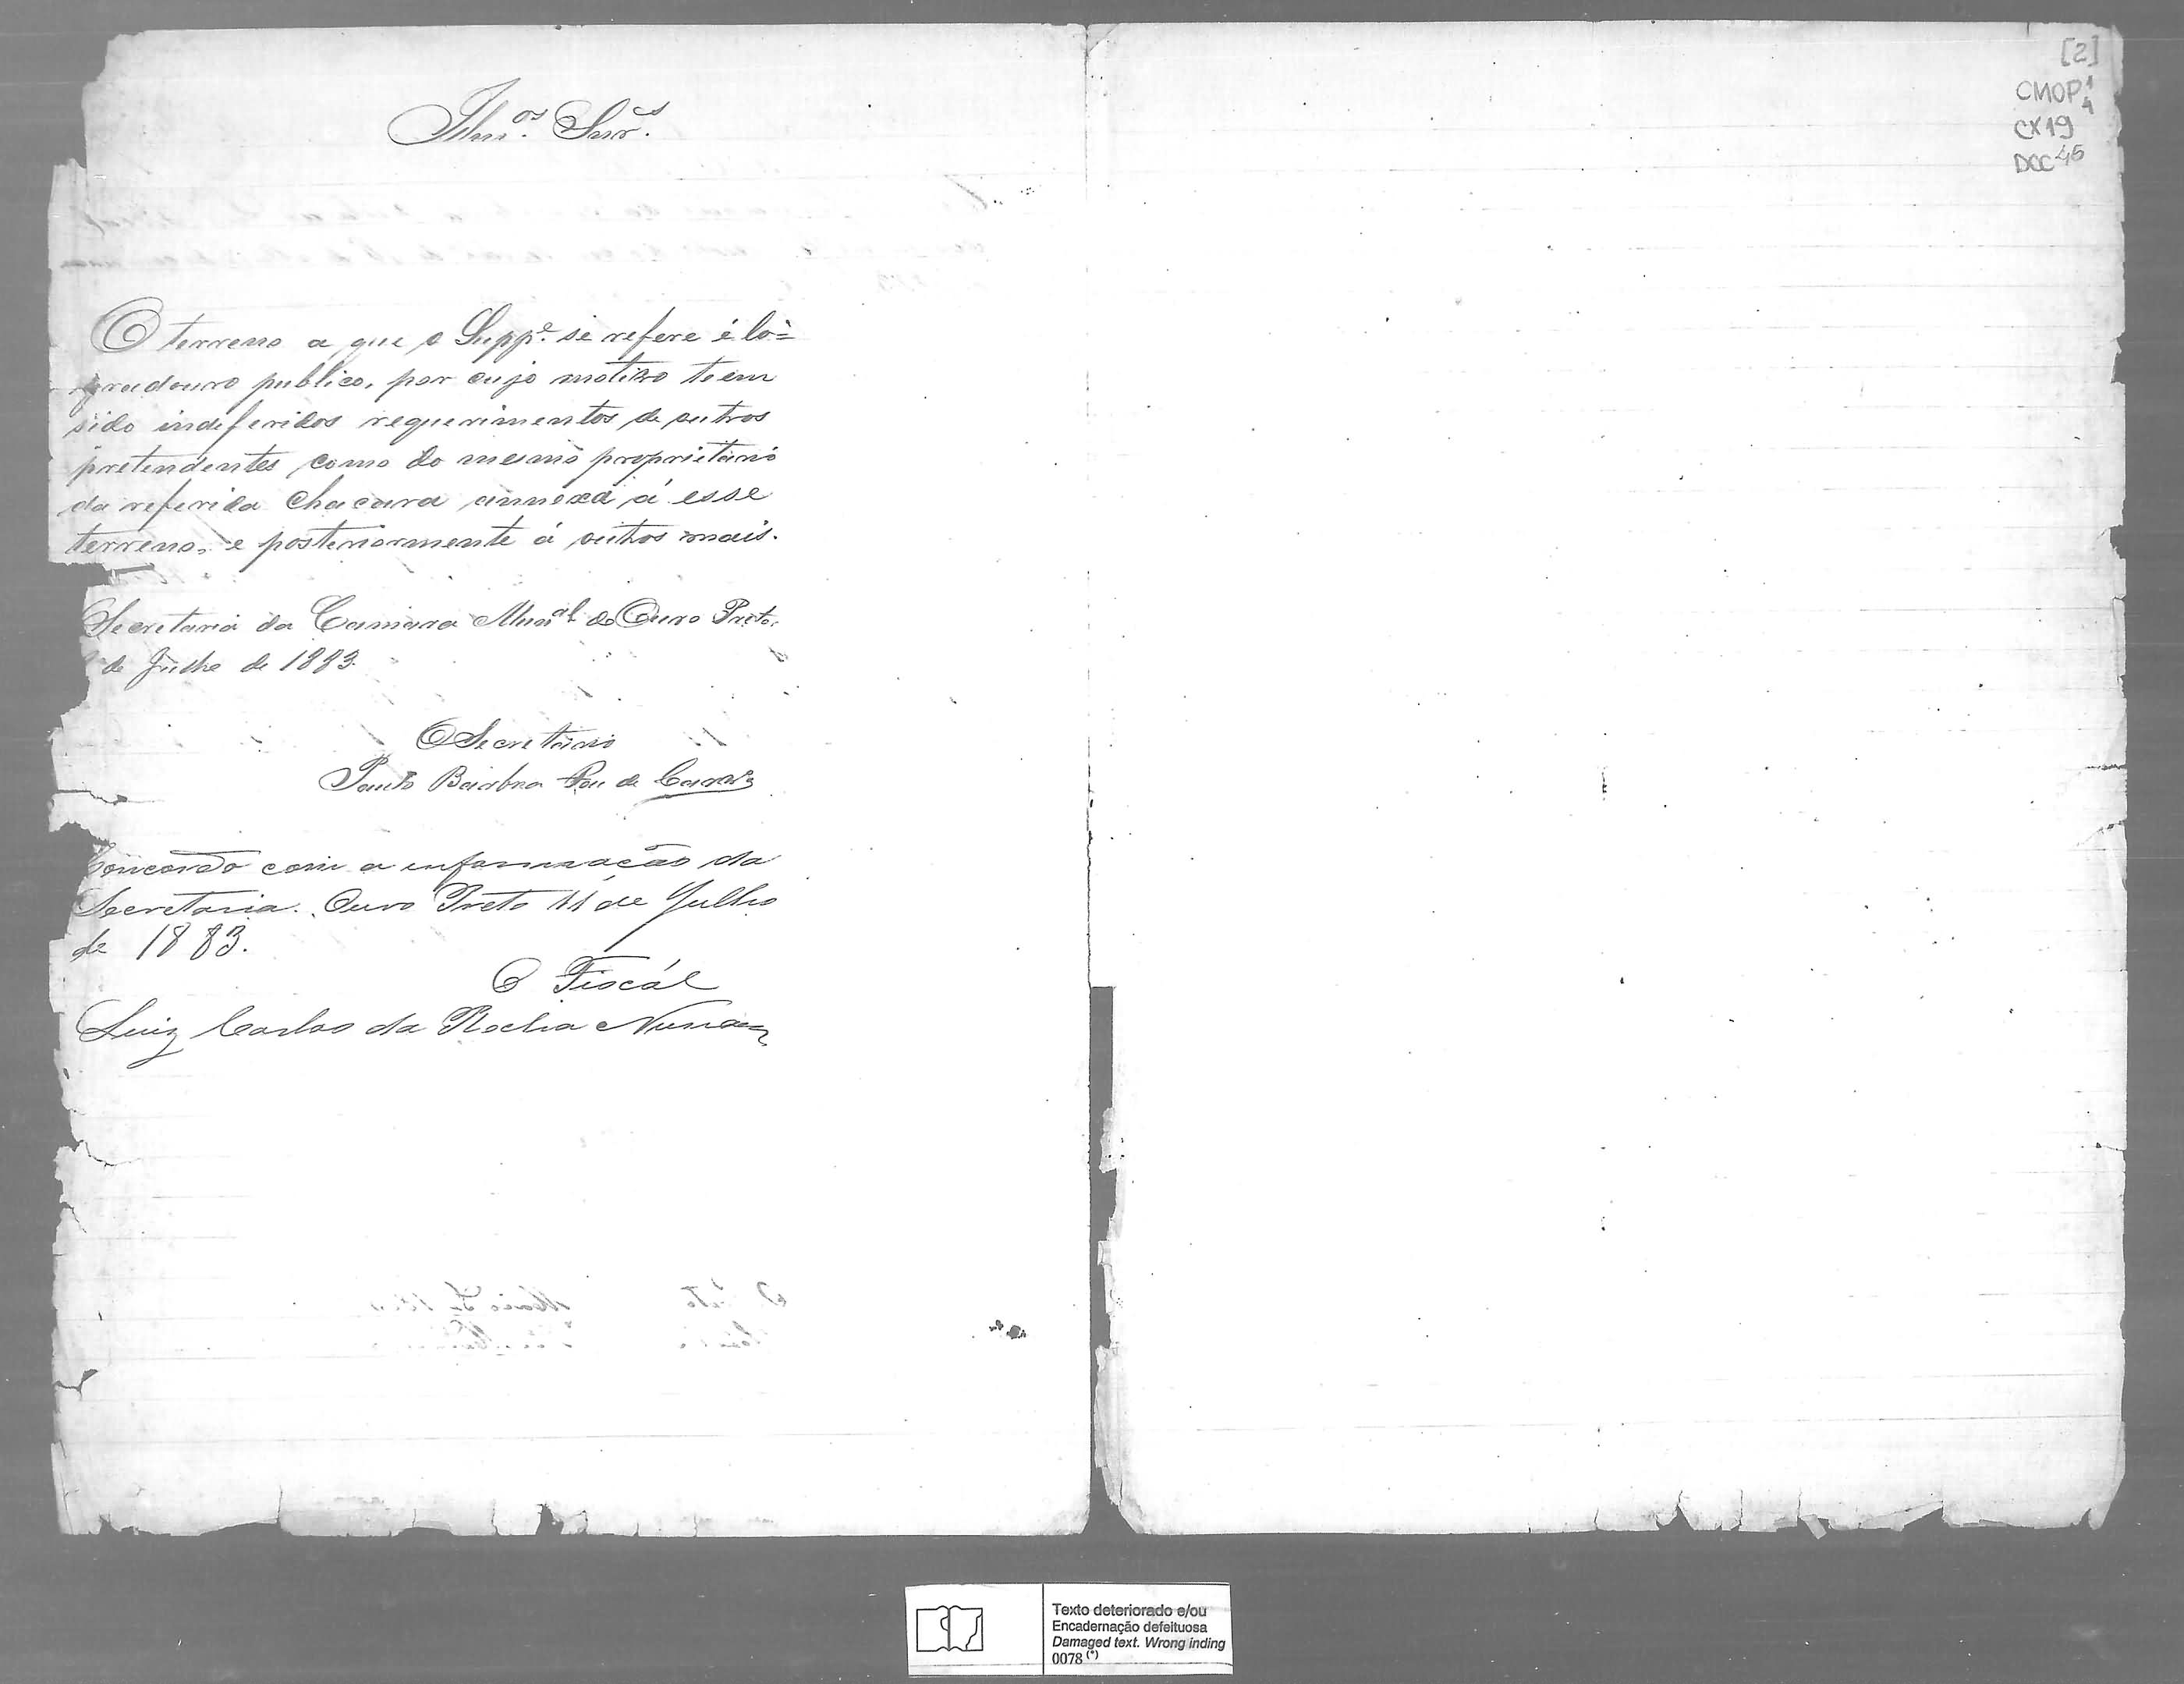 Illm.os Snr.es
O terreno a que o Supp.e se refere é lo=
gradouro publico, por cujo motivo tem
sido indeferidos requerimentos de outros
pretendentes como do mesmo proprietario
da referida chacara annexa á esse
terreno, e posteriormente á outros mais.
Secretaria da Camara Mun.al de Ouro Preto,
de Julho de 1883.
O Secretario
Paulo Barbosa de
Concordo com a informação da
Secretaria. Ouro Preto 11 de Julho
de 1883.
O Fiscál
Luiz Carlos da Rocha
[2]
CMOP 1
4
CX19
DOC 45
Texto deteriorado e/ou
Encadernação defeituosa
Damaged text. Wrong inding
0078 (*)